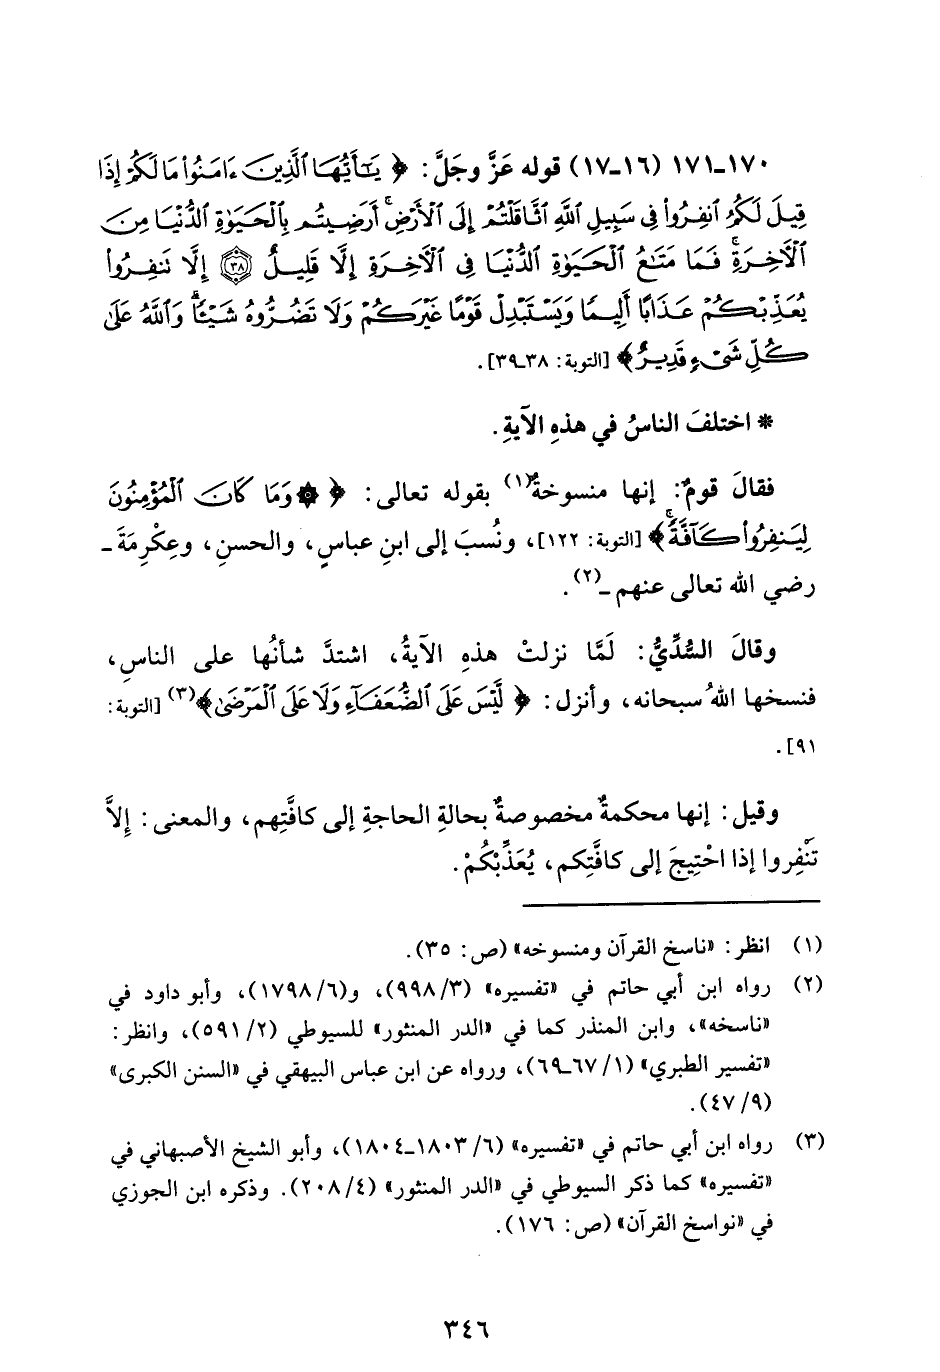 ١٧٠-١٧١ (١٦-١٧) قوله عَزَّ وجَلَّ: ﴿ يَٰٓأَيُّهَا ٱلَّذِينَ ءَامَنُوا۟ مَا لَكُمْ إِذَا
قِيلَ لَكُمُ ٱنفِرُوا۟ فِى سَبِيلِ ٱللَّهِ ٱثَّاقَلْتُمْ إِلَى ٱلْأَرْضِ ۚ أَرَضِيتُم بِٱلْحَيَوٰةِ ٱلدُّنْيَا مِنَ
ٱلْءَاخِرَةِ ۚ فَمَا مَتَٰعُ ٱلْحَيَوٰةِ ٱلدُّنْيَا فِى ٱلْءَاخِرَةِ إِلَّا قَلِيلٌ ﴿٣٨﴾ إِلَّا تَنفِرُوا۟
يُعَذِّبْكُمْ عَذَابًا أَلِيمًا وَيَسْتَبْدِلْ قَوْمًا غَيْرَكُمْ وَلَا تَضُرُّوهُ شَيْـًٔا ۗ وَٱللَّهُ عَلَىٰ
كُلِّ شَىْءٍ قَدِيرٌ﴾ [التوبة: ٣٨-٣٩].
* اختلفَ الناسُ في هذهِ الآيةِ.
فقالَ قومٌ: إنها منسوخةٌ(١) بقوله تعالى: ﴿ ۞ وَمَا كَانَ ٱلْمُؤْمِنُونَ
لِيَنفِرُوا۟ كَآفَّةً ۚ﴾ [التوبة: ١٢٢]، ونُسبَ إلى ابنِ عباسٍ، والحسنِ، وعِكْرِمَةَ -
رضي الله تعالى عنهم -(٢).
وقالَ السُّدِّيُّ: لَمَّا نزلتْ هذهِ الآيةُ، اشتدَّ شأنُها على الناسِ،
فنسخها اللهُ سبحانه، وأنزل: ﴿ لَّيْسَ عَلَى ٱلضُّعَفَآءِ وَلَا عَلَى ٱلْمَرْضَىٰ﴾(٣) [التوبة:
٩١].
وقيل: إنها محكمةٌ مخصوصةٌ بحالةِ الحاجةِ إلى كافَّتِهم، والمعنى: إِلاَّ
تَنْفِروا إذا احْتِيجَ إلى كافَّتِكم، يُعَذِّبْكُمْ.
(١) انظر: «ناسخ القرآن ومنسوخه» (ص: ٣٥).
(٢) رواه ابن أبي حاتم في «تفسيره» (٣/ ٩٩٨)، و(٦/ ١٧٩٨)، وأبو داود في
«ناسخه»، وابن المنذر كما في «الدر المنثور» للسيوطي (٢/ ٥٩١)، وانظر:
«تفسير الطبري» (١/ ٦٧-٦٩)، ورواه عن ابن عباس البيهقي في «السنن الكبرى»
(٩/ ٤٧).
(٣) رواه ابن أبي حاتم في «تفسيره» (٦/ ١٨٠٣-١٨٠٤)، وأبو الشيخ الأصبهاني في
«تفسيره» كما ذكر السيوطي في «الدر المنثور» (٤/ ٢٠٨). وذكره ابن الجوزي
في «نواسخ القرآن» (ص: ١٧٦).
٣٤٦